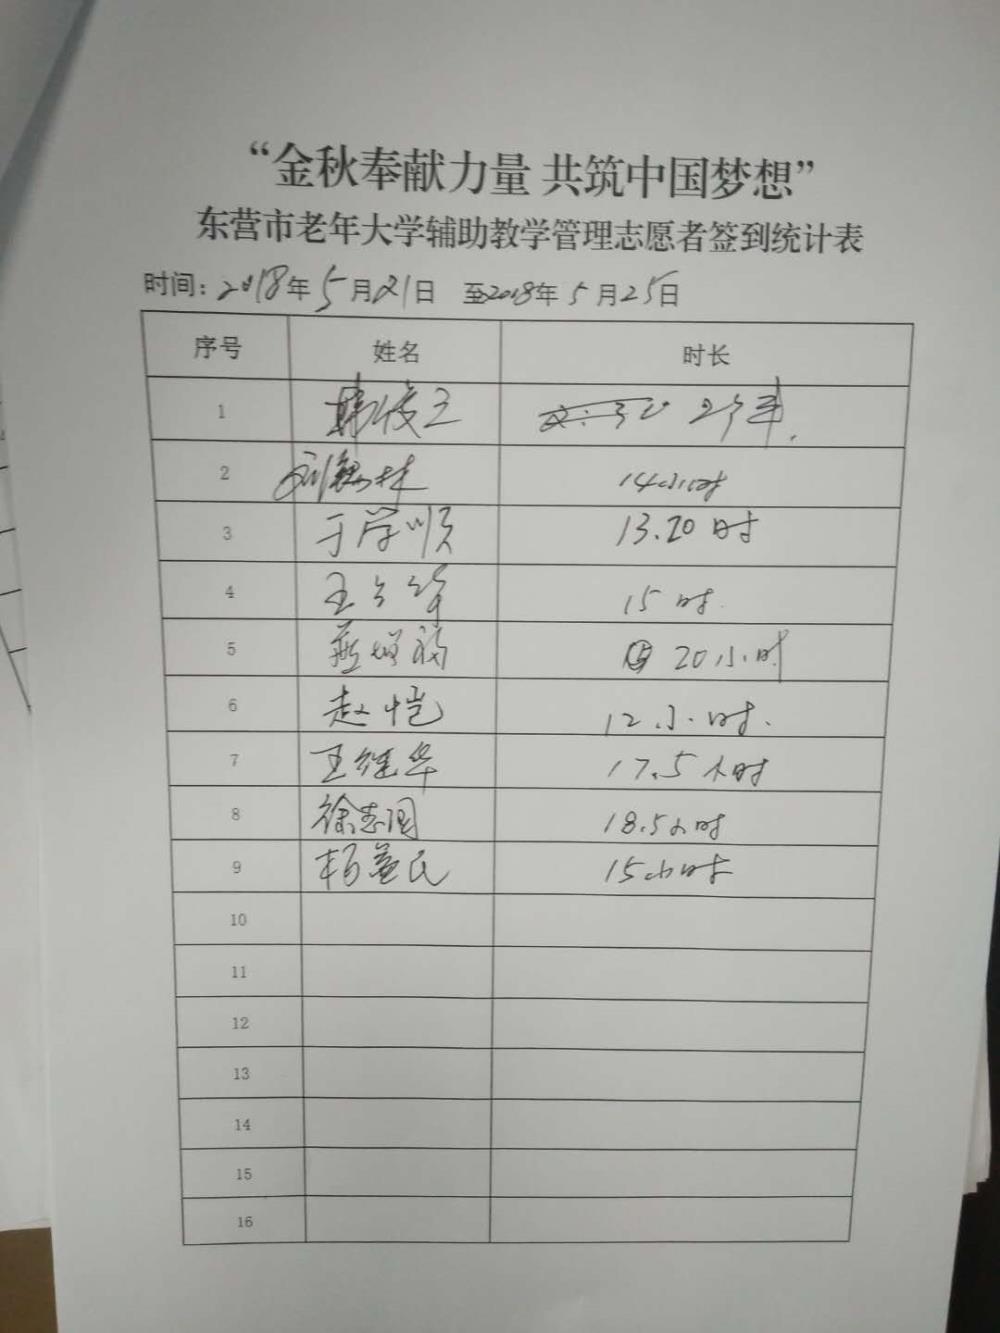 “金秋奉献力量 共筑中国梦想”
东营市老年大学辅助教学管理志愿者签到统计表
时间：2018年5月21日 至2018年5月25日
序号 姓名 时长
1
2 14小时
3 于学顺 13.20时
4 王 15时
5 20小时
6 赵恺 12小时.
7 王继华 17.5小时
8 徐志国 18.5小时
9 柏益民 15小时
10
11
12
13
14
15
16